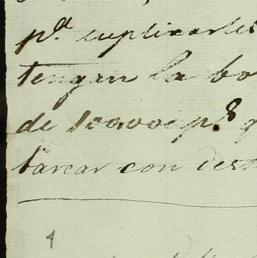 p.ª suplicarles
tengan la bo
de 100,000 p.s q
barcar con dest
1